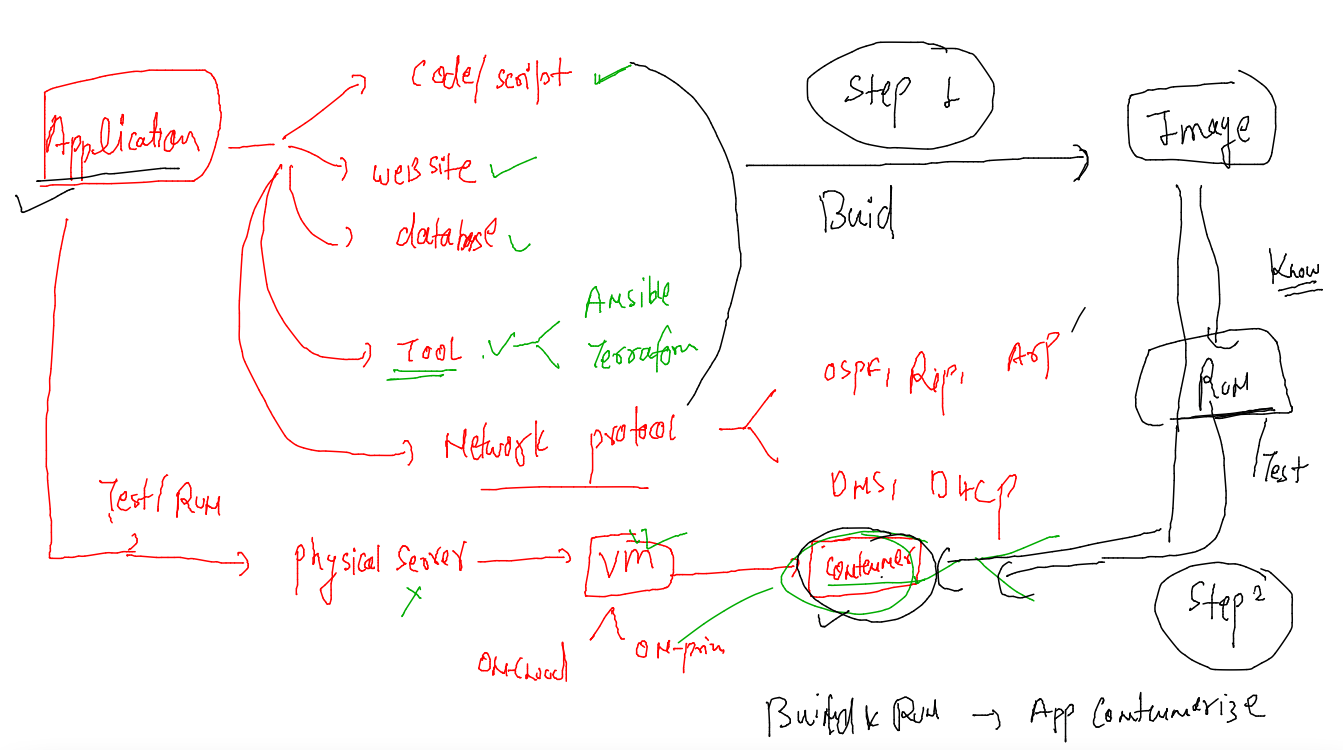 Application
code/script
website
database
TOOL
Ansible
Terraform
Network protocol
OSPF, Rip, Arp
DNS, DHCP
Step 1
Buid
Image
Know
Run
Test
Test/Run
physical server
VM
container
on-cloud
on-prim
Step 2
Build & Run → App Containerize